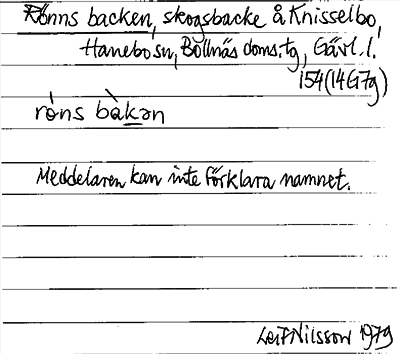 Rönns backen, skogsbacke å Knisselbo,
Hanebo sn, Bollnäs doms.tg, Gävl. l.
154 (14G7g)
rò̀ns bàkan
Meddelaren kan inte förklara namnet.
Leif Nilsson 1979